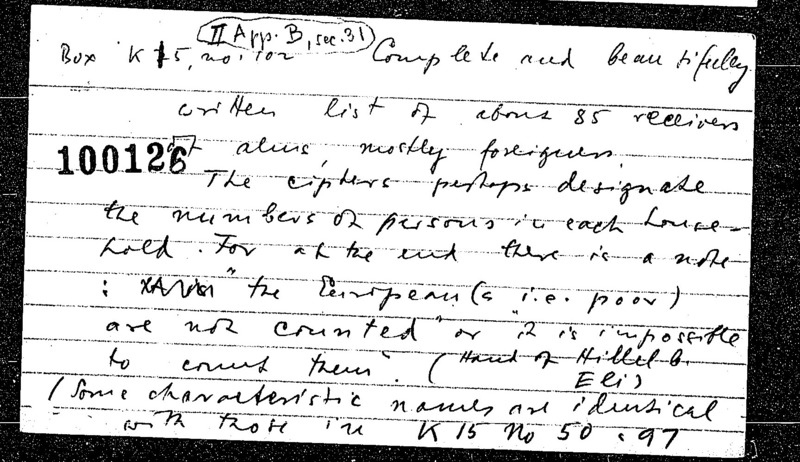 II App. B, sec. 31
Box K 15, no. 102 Complete and beautifully
written list of about 85 receivers
of alms, mostly foreigners.
100126
The ciphers perhaps designate
the numbers of persons in each house-
hold. For at the end there is a note
: "the European (s "i.e. poor)
are not counted" or "it is impossible
to count them". (Hand of Hillel b.
Eli)
(Some characteristic names are identical
with those in K 15 No 50 . 97